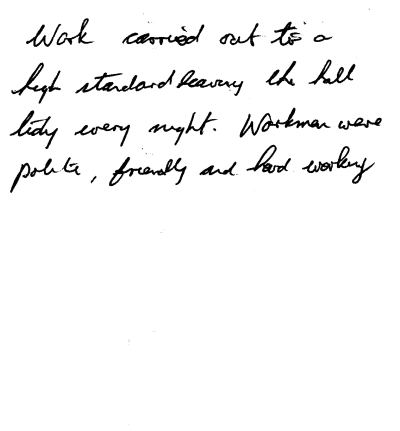 Work carried out to a
high standard leaving the hall
tidy every night. Workmen were
polite, friendly and hard working